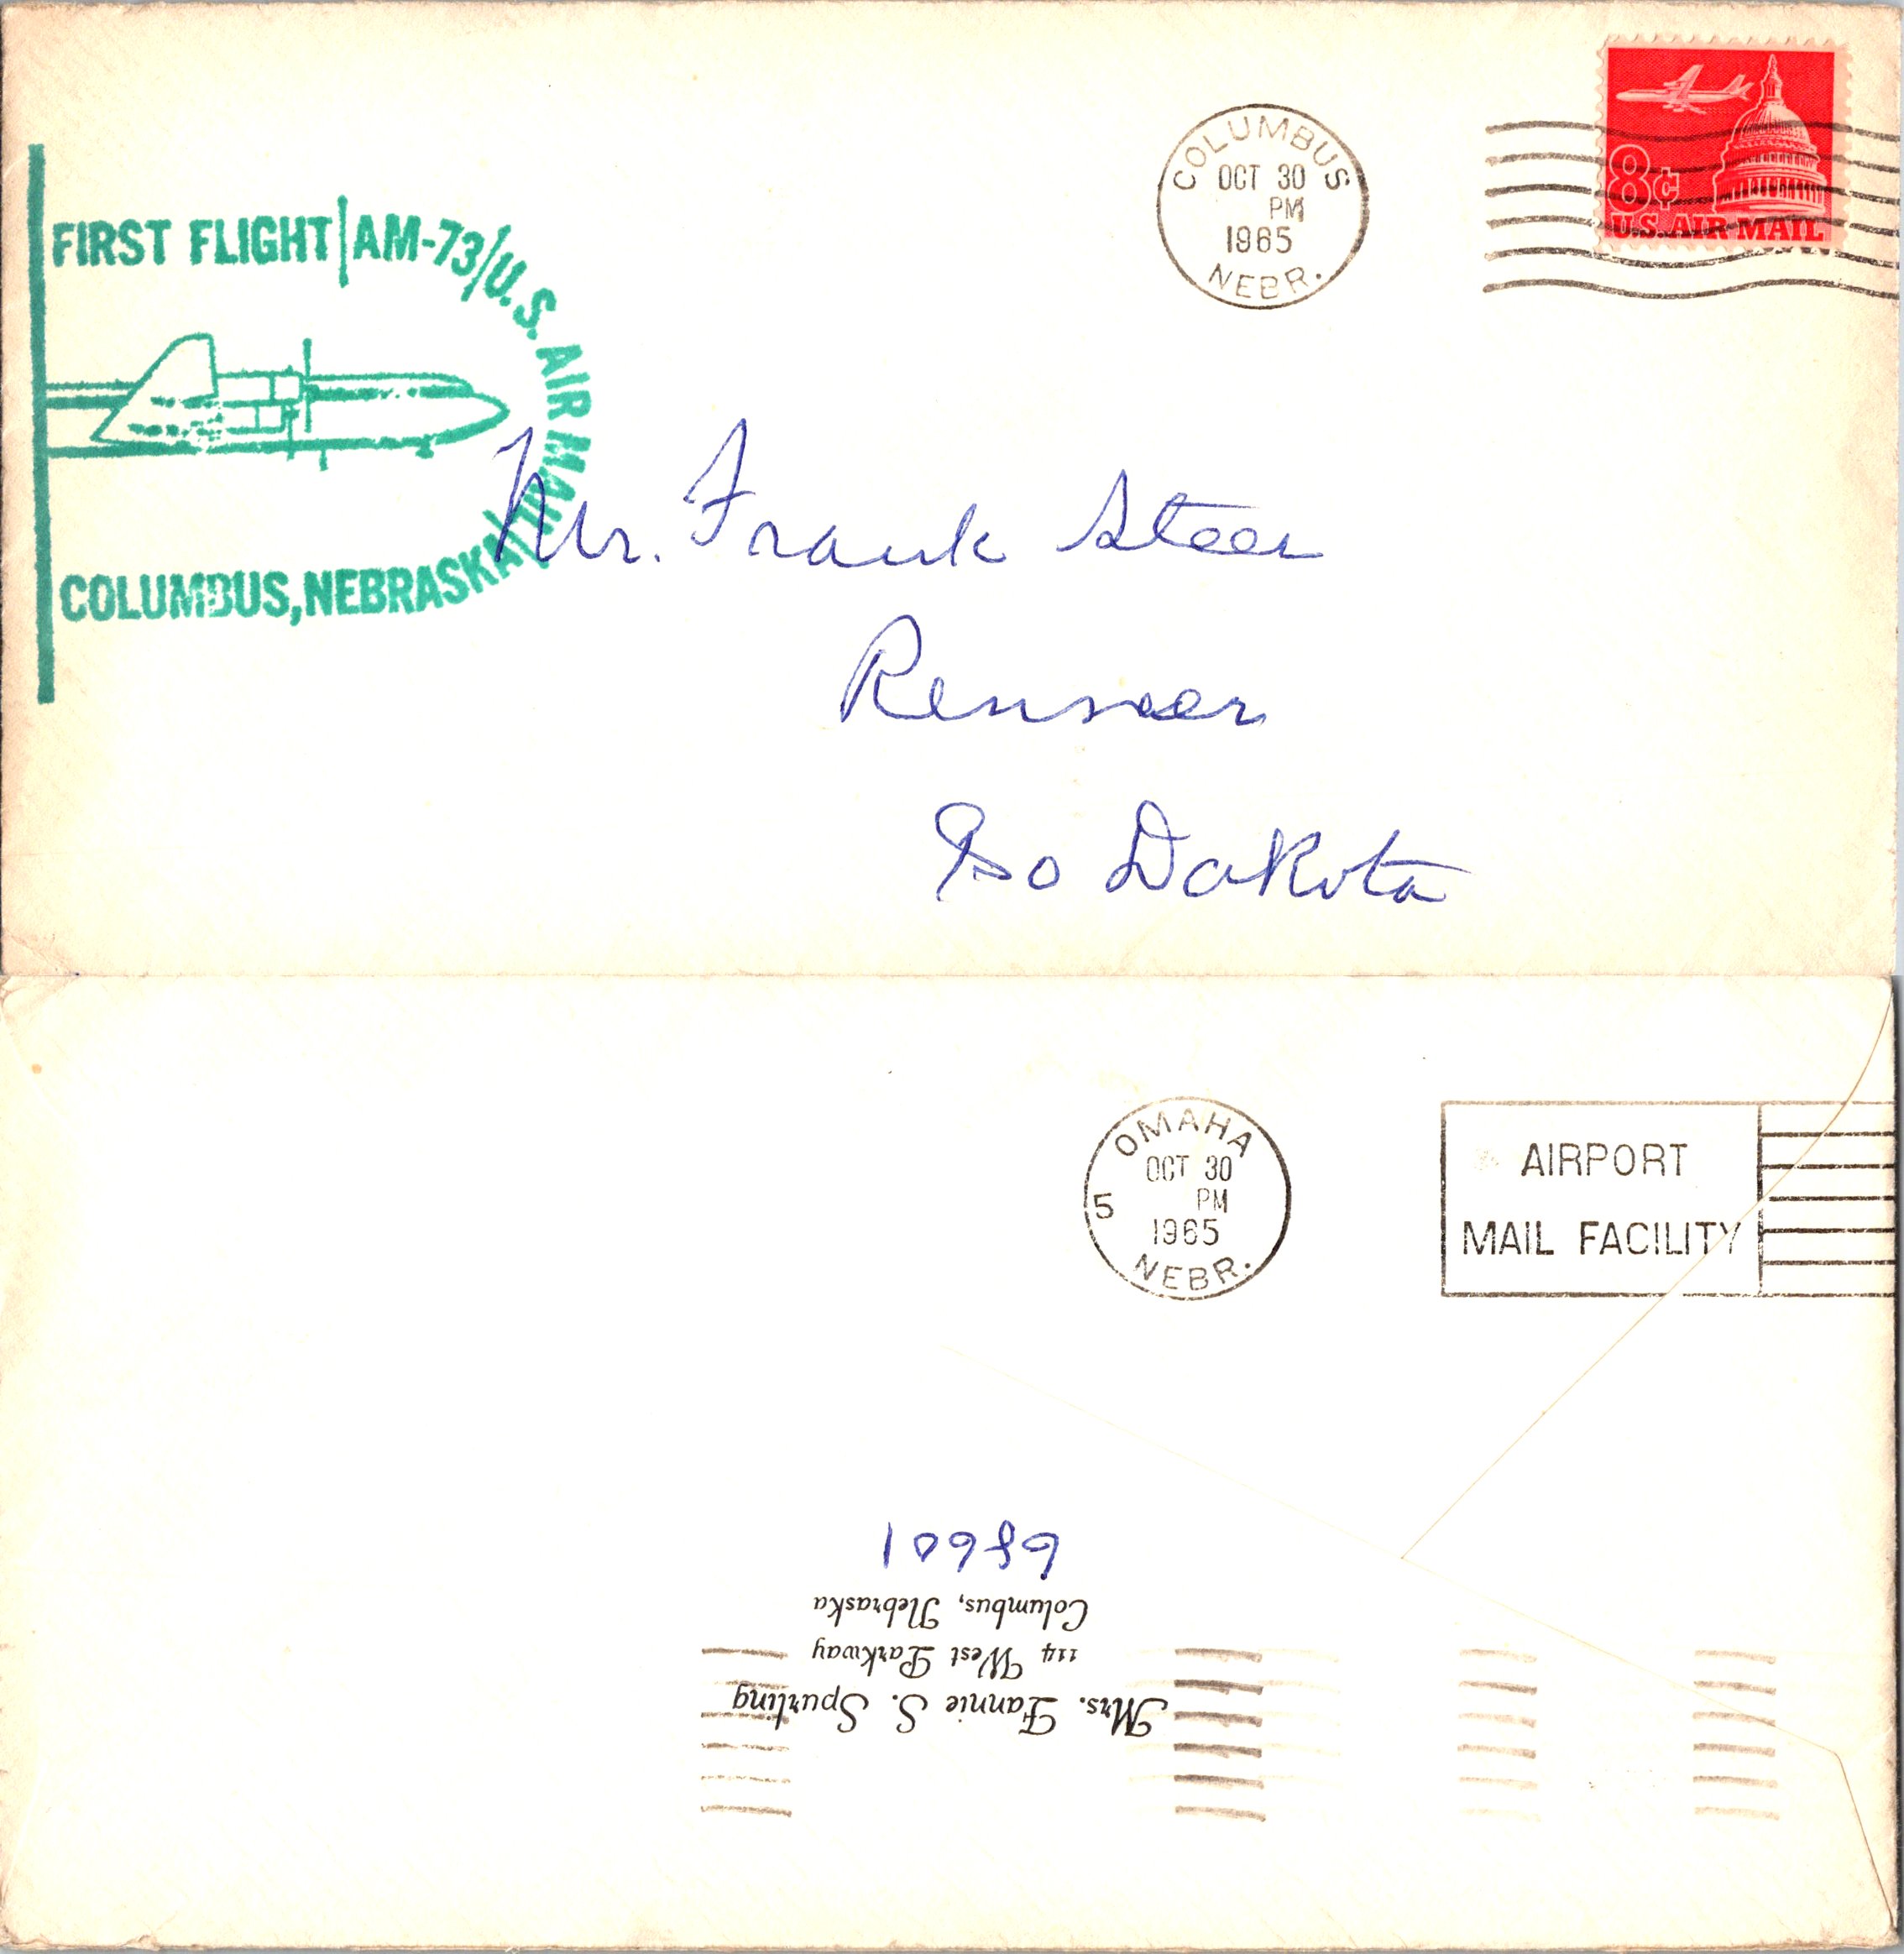 FIRST FLIGHT|AM-73/U.S. AIR MAIL/
COLUMBUS, NEBRASKA
COLUMBUS
OCT 30
PM
1965
NEBR.
8¢
U.S. AIR MAIL
Mr. Frank Steer
So Dakota
OMAHA
OCT 30
5 PM
1965
NEBR.
AIRPORT
MAIL FACILITY
Mrs. Fannie S. Spurling
114 West Parkway
Columbus, Nebraska
68601